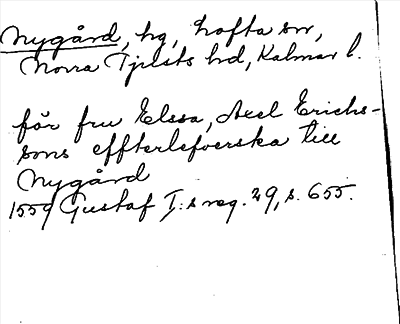 Nygård, hg, Lofta sn,
Norra Tjusts hd, Kalmar l.
för fru Elssa, Axel Erichs-
sons effterlefverska till
Nygård
1559 Gustaf I:s reg. 29, s. 655.